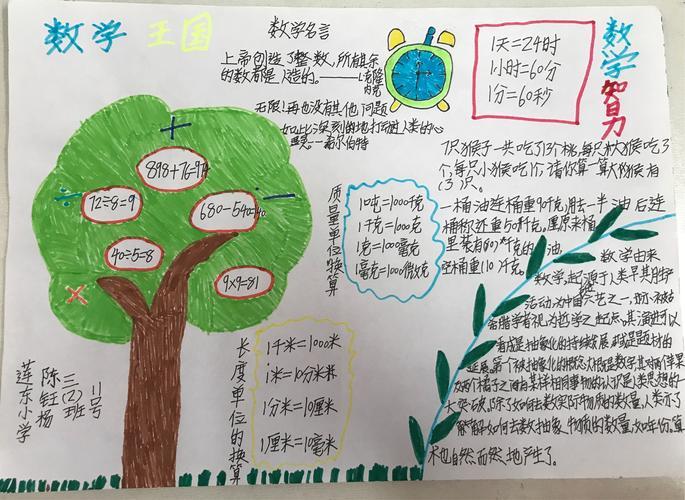 数学 王国
数学名言
上帝创造了整数，所有其余
的数都是人造的。——克隆
内克
无限！再也没有其他问题
如此深刻地打动过人类的心
灵——希尔伯特
1天=24时
1小时=60分
1分=60秒
数学智力
7只猴子一共吃了13个桃，每只大猴吃3
个，每只小猴吃1个，请你算一算大猴有
(3)只。
898+76=974
72÷8=9
680-540=140
40÷5=8
9×9=81
质量单位换算
1吨=1000千克
1千克=1000克
1克=1000毫克
1毫克=1000微克
一桶油连桶重90千克，用去一半油后连
桶称还重50千克。里原来桶
里装有80千克的油，
空桶重(10)千克。
数学由来
数学，起源于人类早期生产
活动，为中国六艺之一，亦被
希腊学者视为哲学之起点。其演进可以
看成是抽象化的持续发展，或是题材的
延展。第一个被抽象化的概念大概是数字，其对两个苹果
及两个橘子之间有某样相同事物的认知是人类思想的一
大突破。除了如何去数实际物质的数量，人类亦了
解如何去数抽象物质的数量，如年份，算
术也自然而然地产生了。
长度单位的换算
1千米=1000米
1米=10分米
1分米=10厘米
1厘米=10毫米
莲东小学
陈钰杨
三(2)班
11号